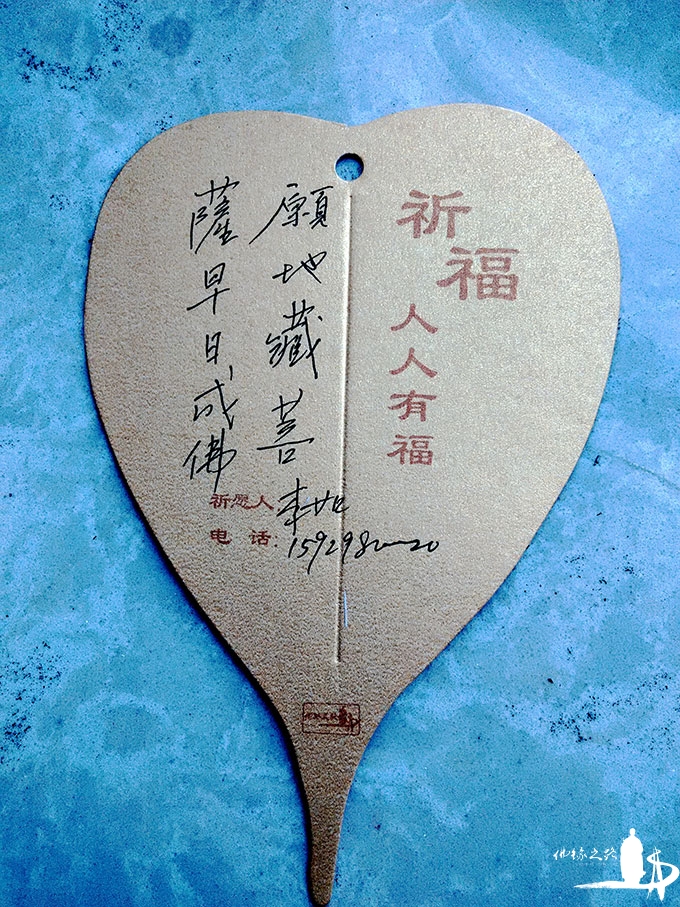 祈福
人人有福
願地藏菩
薩早日成佛
祈愿人
电 话:
佛缘之路